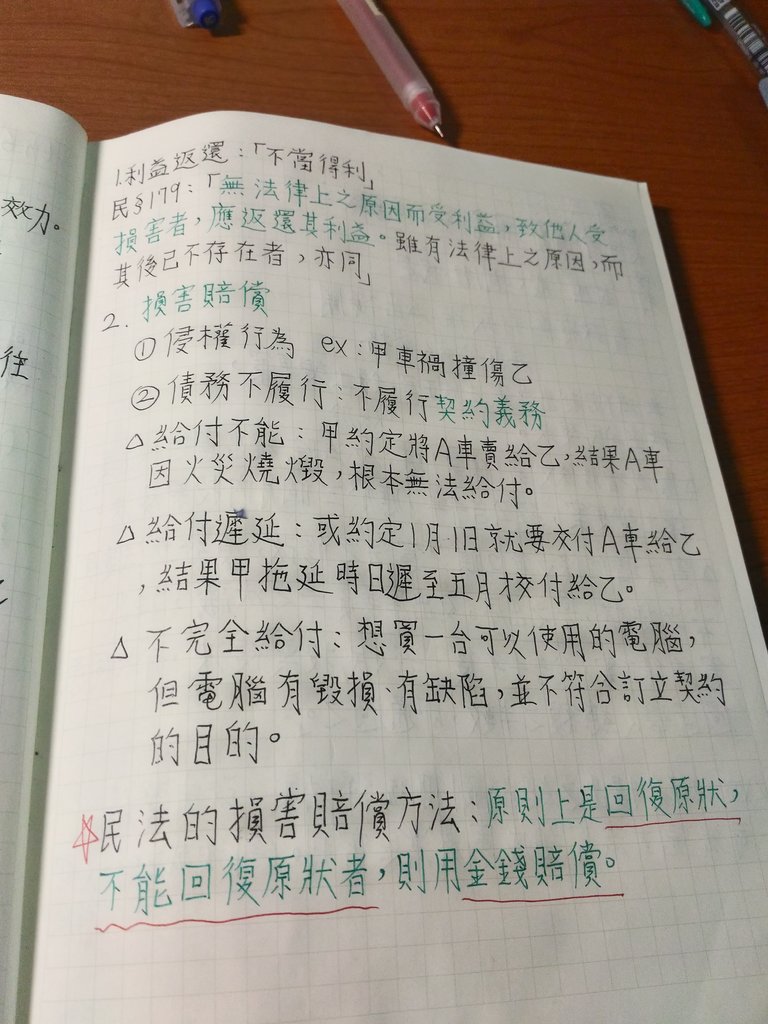 效力。
往
1.利益返還：「不當得利」
民§179：「無法律上之原因而受利益，致他人受
損害者，應返還其利益。雖有法律上之原因，而
其後已不存在者，亦同」
2. 損害賠償
① 侵權行為 ex：甲車禍撞傷乙
② 債務不履行：不履行契約義務
△ 給付不能：甲約定將A車賣給乙，結果A車
因火災燒燬，根本無法給付。
△ 給付遲延：或約定1月1日就要交付A車給乙
，結果甲拖延時日遲至五月才交付給乙。
△ 不完全給付：想買一台可以使用的電腦，
但電腦有毀損、有缺陷，並不符合訂立契約
的目的。
☆民法的損害賠償方法：原則上是回復原狀，
不能回復原狀者，則用金錢賠償。